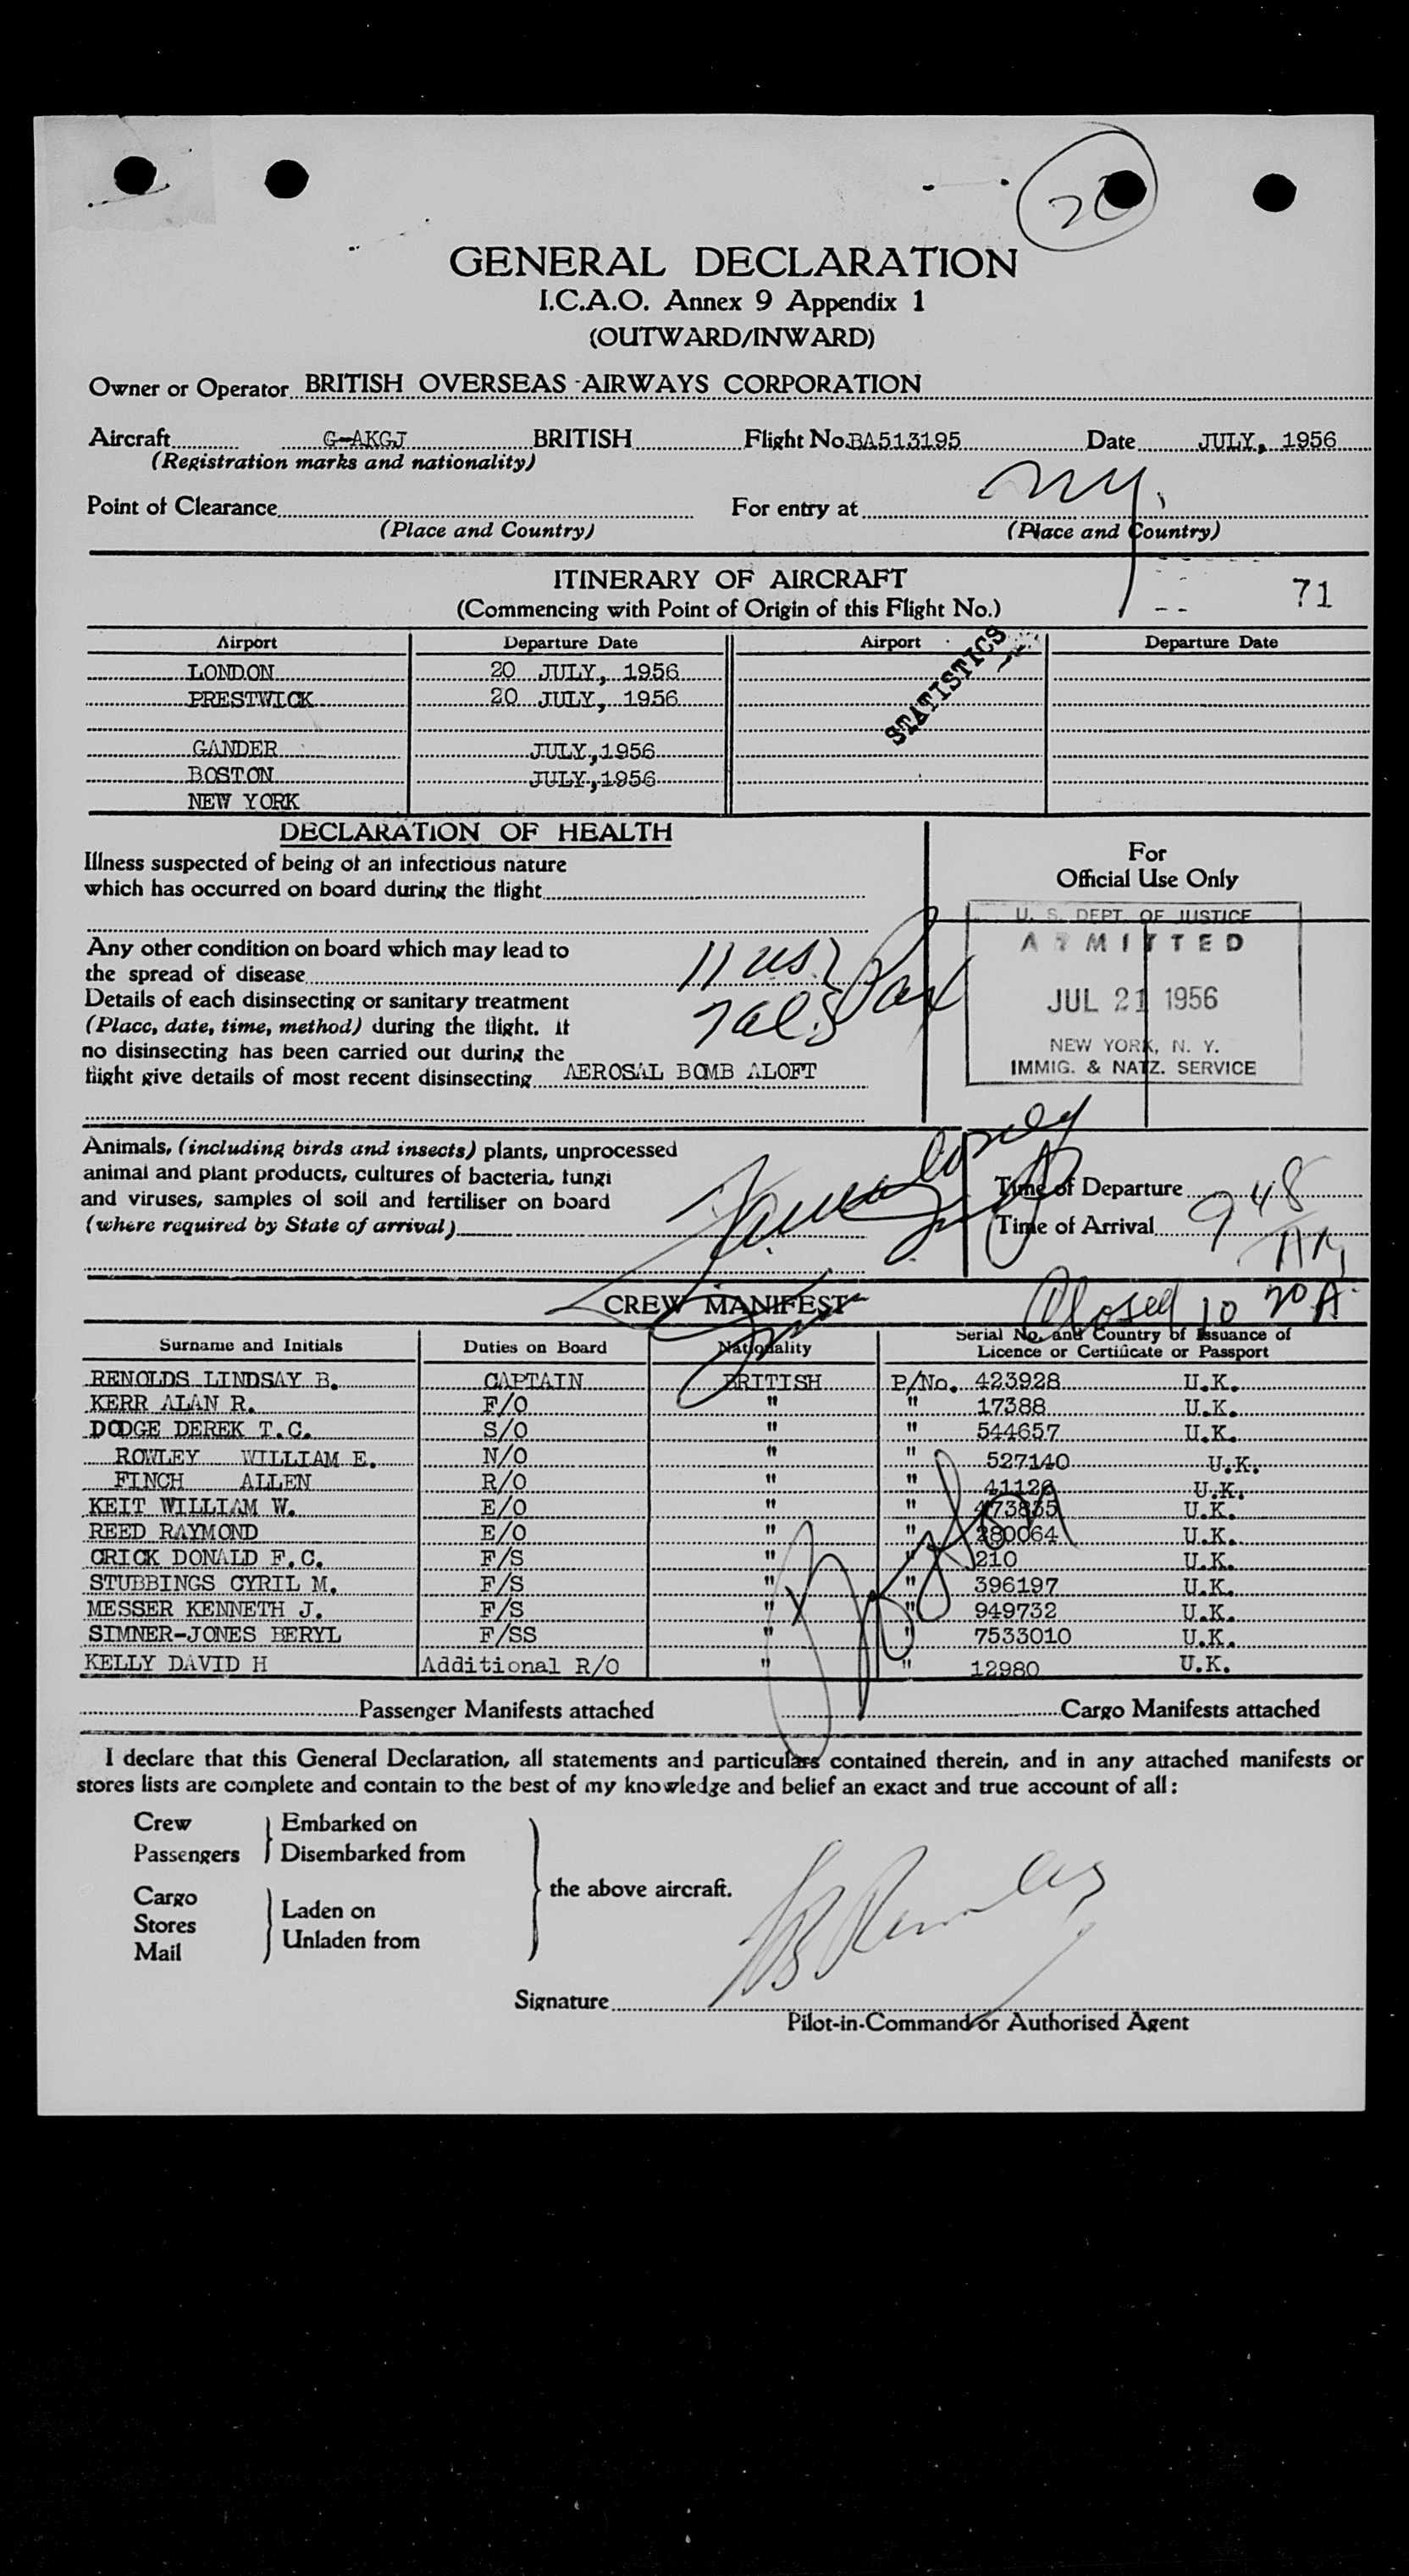 20
GENERAL DECLARATION
I.C.A.O. Annex 9 Appendix 1
(OUTWARD/INWARD)
Owner or Operator BRITISH OVERSEAS AIRWAYS CORPORATION
Aircraft G-AKGJ BRITISH Flight No. BA513195 Date JULY, 1956
(Registration marks and nationality)
Point of Clearance For entry at NY.
(Place and Country) (Place and Country)
ITINERARY OF AIRCRAFT
(Commencing with Point of Origin of this Flight No.) 71
Airport Departure Date Airport Departure Date
STATISTICS
LONDON 20 JULY, 1956
PRESTWICK 20 JULY, 1956
GANDER JULY, 1956
BOSTON JULY, 1956
NEW YORK
DECLARATION OF HEALTH
Illness suspected of being of an infectious nature
which has occurred on board during the flight
For
Official Use Only
U. S. DEPT. OF JUSTICE
ADMITTED
JUL 21 1956
NEW YORK, N. Y.
IMMIG. & NATZ. SERVICE
Any other condition on board which may lead to
the spread of disease
11 US
7 al.s Pax
Details of each disinsecting or sanitary treatment
(Place, date, time, method) during the flight. If
no disinsecting has been carried out during the
flight give details of most recent disinsecting AEROSAL BOMB ALOFT
Animals, (including birds and insects) plants, unprocessed
animal and plant products, cultures of bacteria, fungi
and viruses, samples of soil and fertiliser on board
(where required by State of arrival)
Time of Departure
Time of Arrival 9 48 AM
Closed 10 20 A
CREW MANIFEST
Surname and Initials Duties on Board Nationality Serial No. and Country of Issuance of Licence or Certificate or Passport
RENOLDS LINDSAY B. CAPTAIN BRITISH P/No. 423928 U.K.
KERR ALAN R. F/O " " 17388 U.K.
DODGE DEREK T.C. S/O " " 544657 U.K.
ROWLEY WILLIAM E. N/O " " 527140 U.K.
FINCH ALLEN R/O " " 41126 U.K.
KEIT WILLIAM W. E/O " " 473835 U.K.
REED RAYMOND E/O " " 280064 U.K.
CRICK DONALD F.C. F/S " " 210 U.K.
STUBBINGS CYRIL M. F/S " " 396197 U.K.
MESSER KENNETH J. F/S " " 949732 U.K.
SIMNER-JONES BERYL F/SS " " 7533010 U.K.
KELLY DAVID H Additional R/O " " 12980 U.K.
Passenger Manifests attached Cargo Manifests attached
I declare that this General Declaration, all statements and particulars contained therein, and in any attached manifests or
stores lists are complete and contain to the best of my knowledge and belief an exact and true account of all:
Crew Embarked on
Passengers Disembarked from
the above aircraft.
Cargo Laden on
Stores
Mail Unladen from
Signature
Pilot-in-Command or Authorised Agent